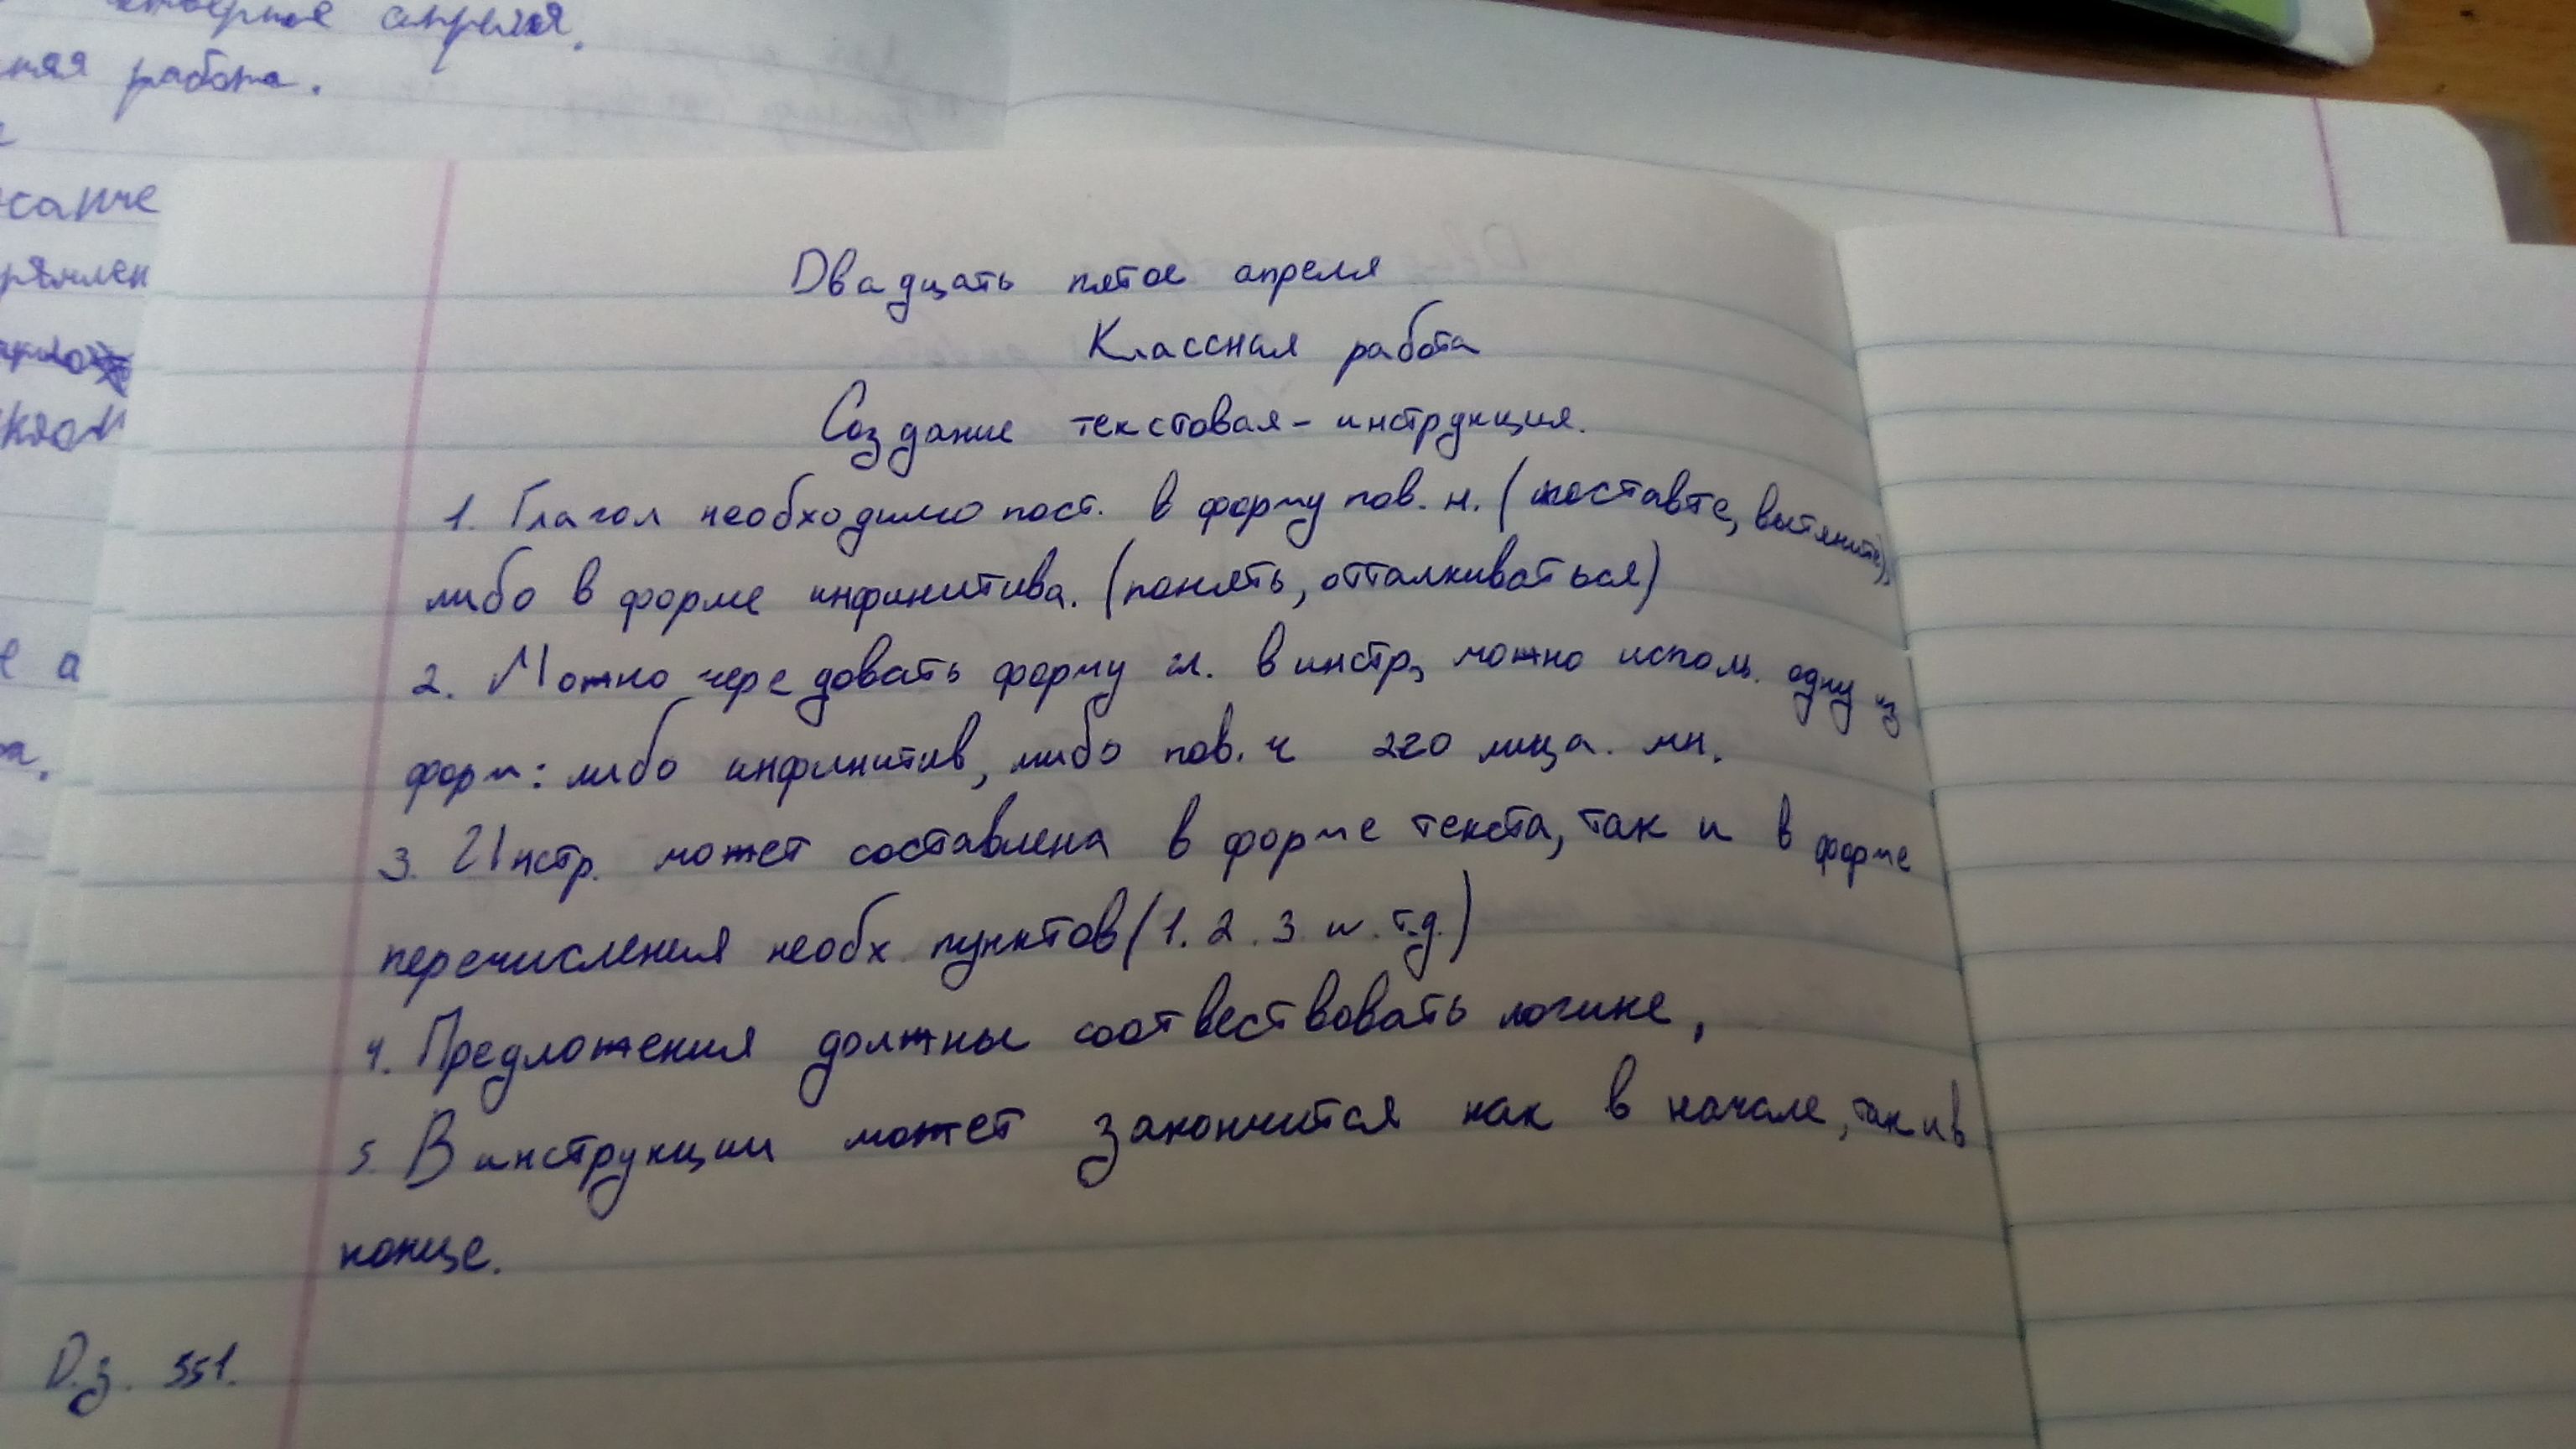 апреля.
работа.
Двадцать пятое апреля
Классная работа
Создание текстовая - инструкция.
1. Глагол необходимо пост. в форму пов. н. (поставте, вытяните),
либо в форме инфинитива. (понять, отталкиваться)
2. Можно чередовать форму гл. в инстр, можно исполь. одну из
форм: либо инфинитив, либо пов. ч 2го лица. мн.
3. Инстр. может составлена в форме текста, так и в форме
перечисления необх. пунктов (1. 2. 3. и. т.д.)
4. Предложения должны соотвествовать логике,
5. В инструкции может закончится как в начале, так и в
конце.
Д.з. 551.